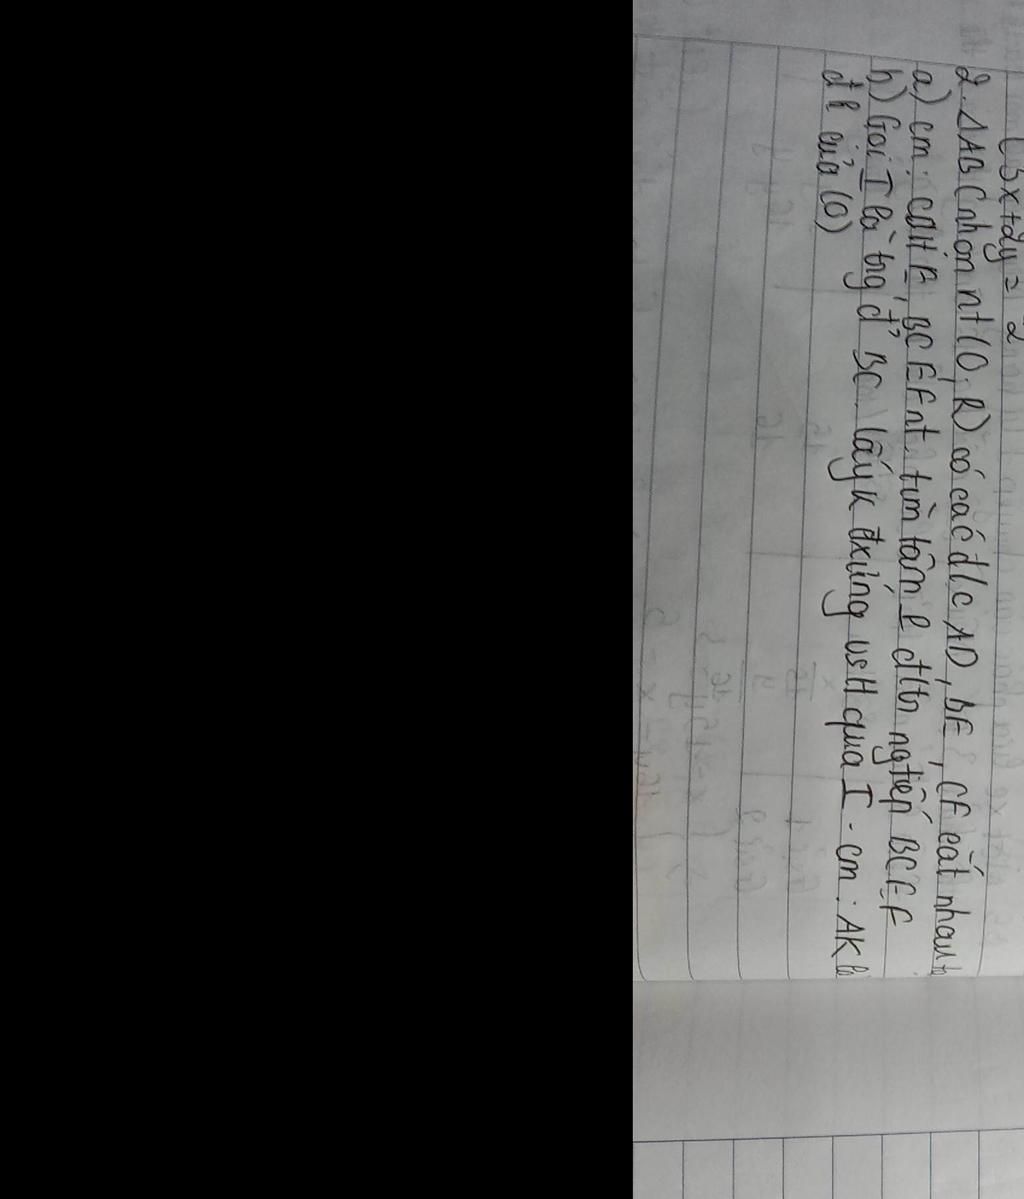 3x+2y=
2
2. ΔABC nhọn nt (O; R) có các đ/c AD, BE, CF cắt nhau
a) cm: CDHE, BCEF nt. tìm tâm I đtn ngtiếp BCEF
b) Gọi I là trg đ' BC. lấy K đxứng vs H qua I. cm: AK là
đk của (O)